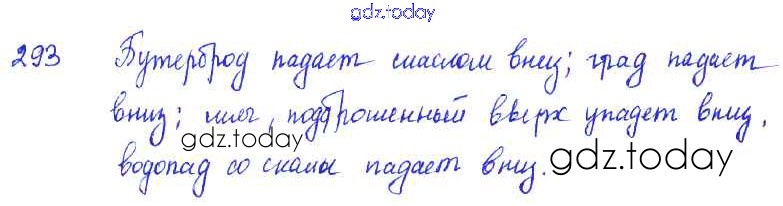 gdz.today
293 Бутерброд падает маслом вниз; град падает
вниз; мяч, подброшенный вверх упадет вниз,
gdz.today
водопад со скалы падает вниз.
gdz.today